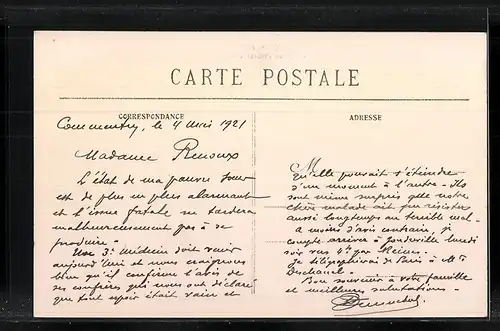 CARTE POSTALE
CORRESPONDANCE
Commentry, le 4 Mars 1921
Madame Renoux
L'état de ma pauvre sœur
est de plus en plus alarmant
et l'issue fatale ne tardera
malheureusement pas à se
produire.
Un 3e Médecin doit venir
aujourd'hui et nous craignons
bien qu'il confirme l'avis de
ses confrères qui nous ont déclaré
que tout espoir était vain et
ADRESSE
M
qu'elle pouvait s'éteindre
d'un moment à l'autre - Ils
sont même surpris que notre
chère malade ait pu résister
aussi longtemps au terrible mal -
A moins d'avis contraire, je
compte arriver à lundi
soir vers 4h par
Je télégraphierai de Paris à Mr
Deschanel.
Bon souvenir à votre famille
et meilleures salutations.